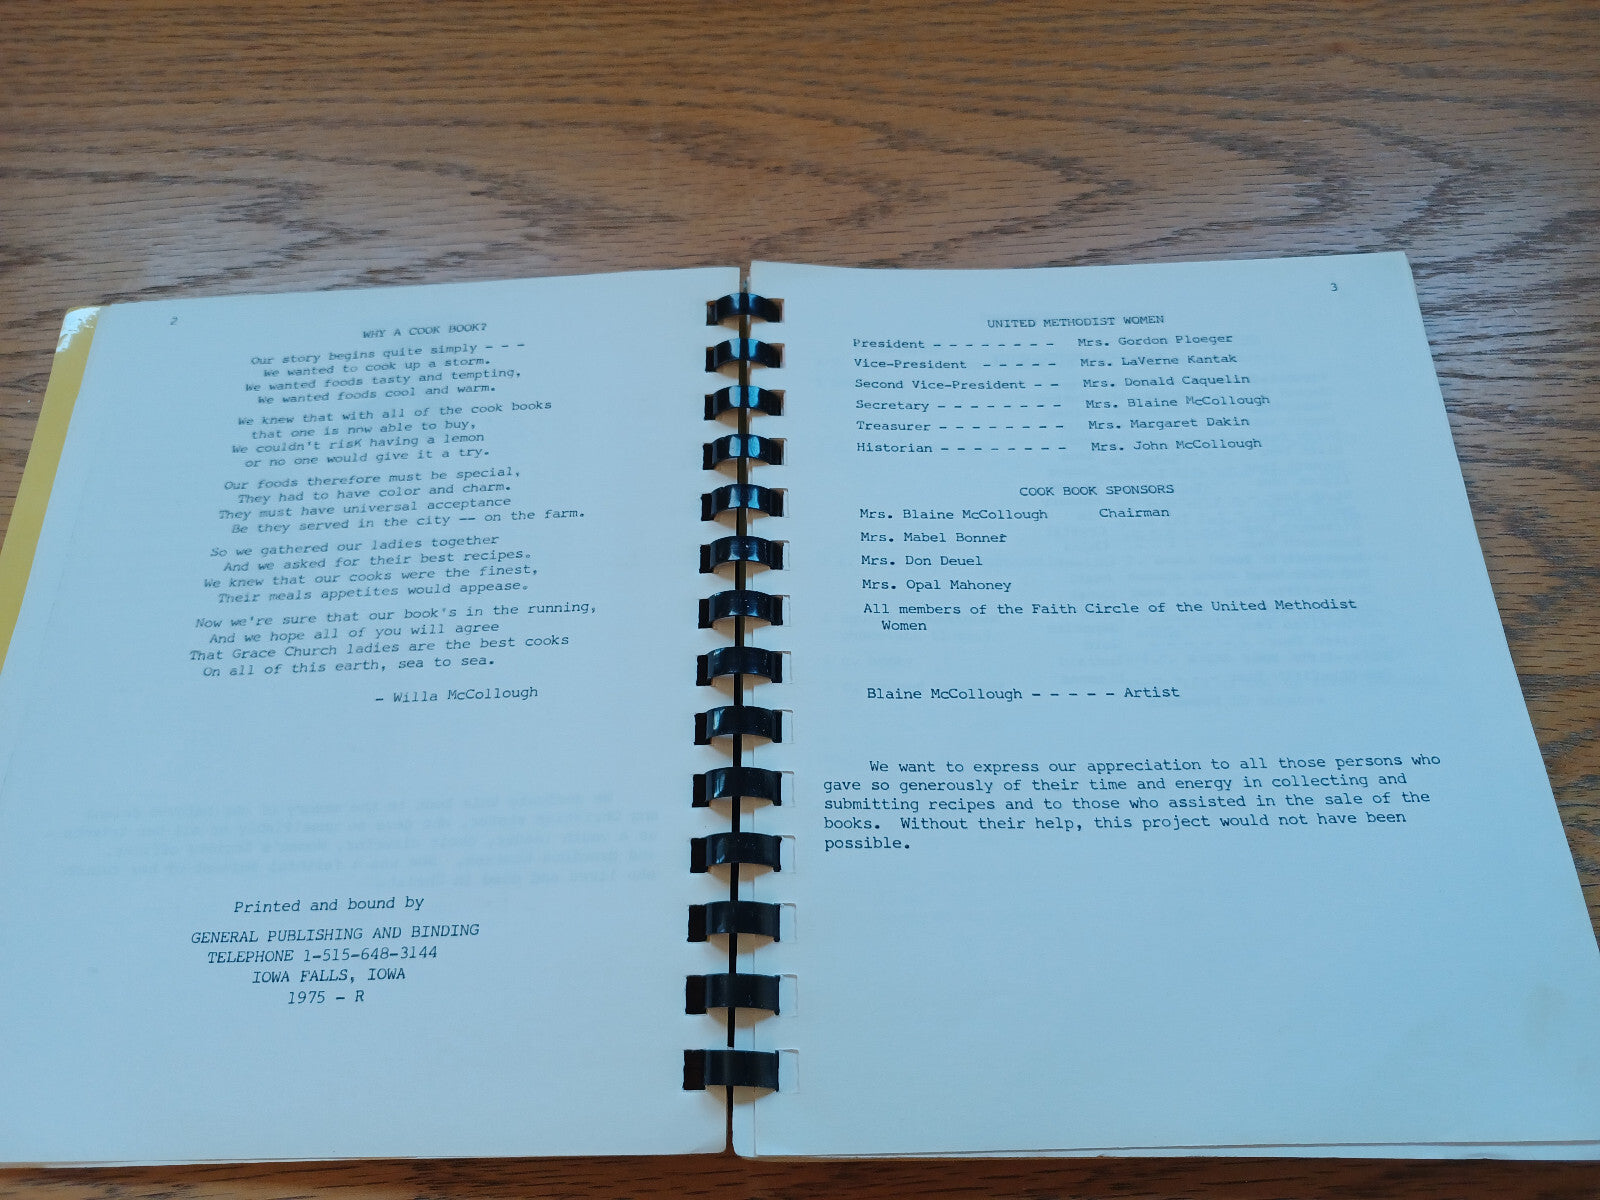 2
WHY A COOK BOOK?
Our story begins quite simply - - -
We wanted to cook up a storm.
We wanted foods tasty and tempting,
We wanted foods cool and warm.
We knew that with all of the cook books
that one is now able to buy,
We couldn't risK having a lemon
or no one would give it a try.
Our foods therefore must be special,
They had to have color and charm.
They must have universal acceptance
Be they served in the city -- on the farm.
So we gathered our ladies together
And we asked for their best recipes.
We knew that our cooks were the finest,
Their meals appetites would appease.
Now we're sure that our book's in the running,
And we hope all of you will agree
That Grace Church ladies are the best cooks
On all of this earth, sea to sea.
- Willa McCollough
Printed and bound by
GENERAL PUBLISHING AND BINDING
TELEPHONE 1-515-648-3144
IOWA FALLS, IOWA
1975 - R
3
UNITED METHODIST WOMEN
President - - - - - - - - Mrs. Gordon Ploeger
Vice-President - - - - - Mrs. LaVerne Kantak
Second Vice-President - - Mrs. Donald Caquelin
Secretary - - - - - - - - Mrs. Blaine McCollough
Treasurer - - - - - - - - Mrs. Margaret Dakin
Historian - - - - - - - - Mrs. John McCollough
COOK BOOK SPONSORS
Mrs. Blaine McCollough Chairman
Mrs. Mabel Bonner
Mrs. Don Deuel
Mrs. Opal Mahoney
All members of the Faith Circle of the United Methodist
Women
Blaine McCollough - - - - - Artist
We want to express our appreciation to all those persons who
gave so generously of their time and energy in collecting and
submitting recipes and to those who assisted in the sale of the
books. Without their help, this project would not have been
possible.